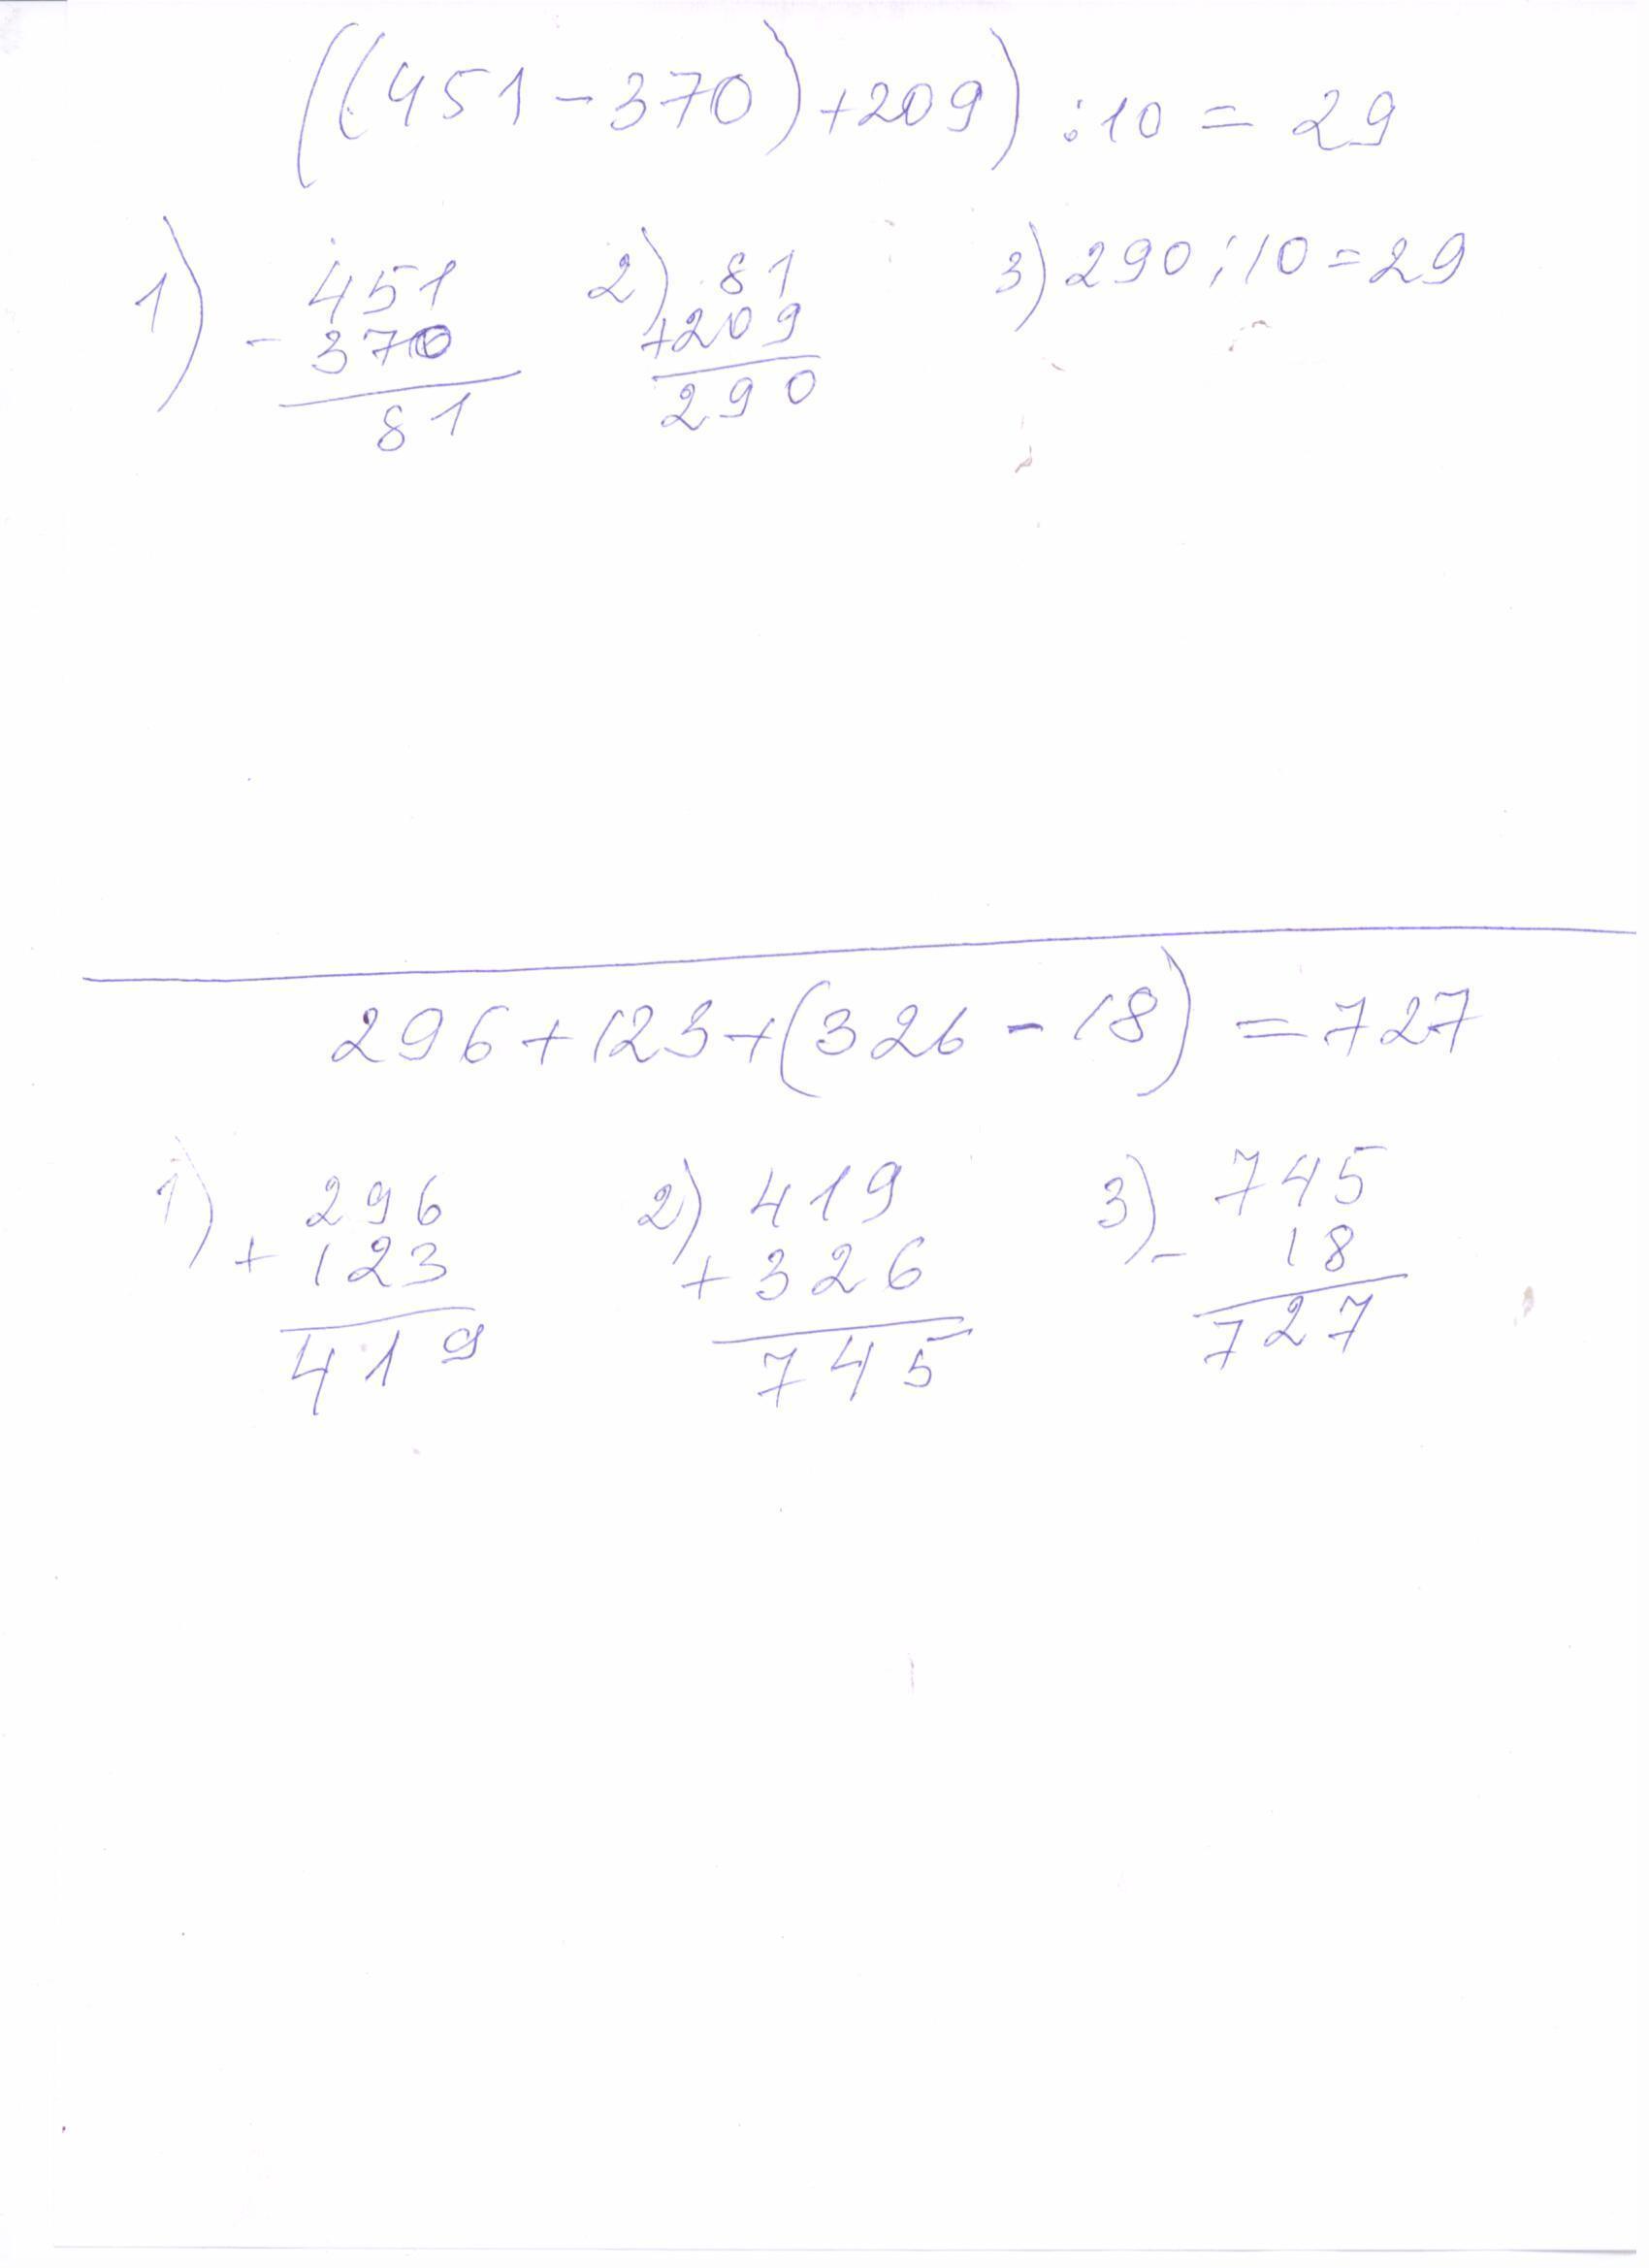 ((451-370)+209):10=29
1) 451 2) 81 3) 290:10=29
- 370 +209
81 290
296+123+(326-18)=727
1) 296 2) 419 3) 745
+ 123 + 326 - 18
419 745 727